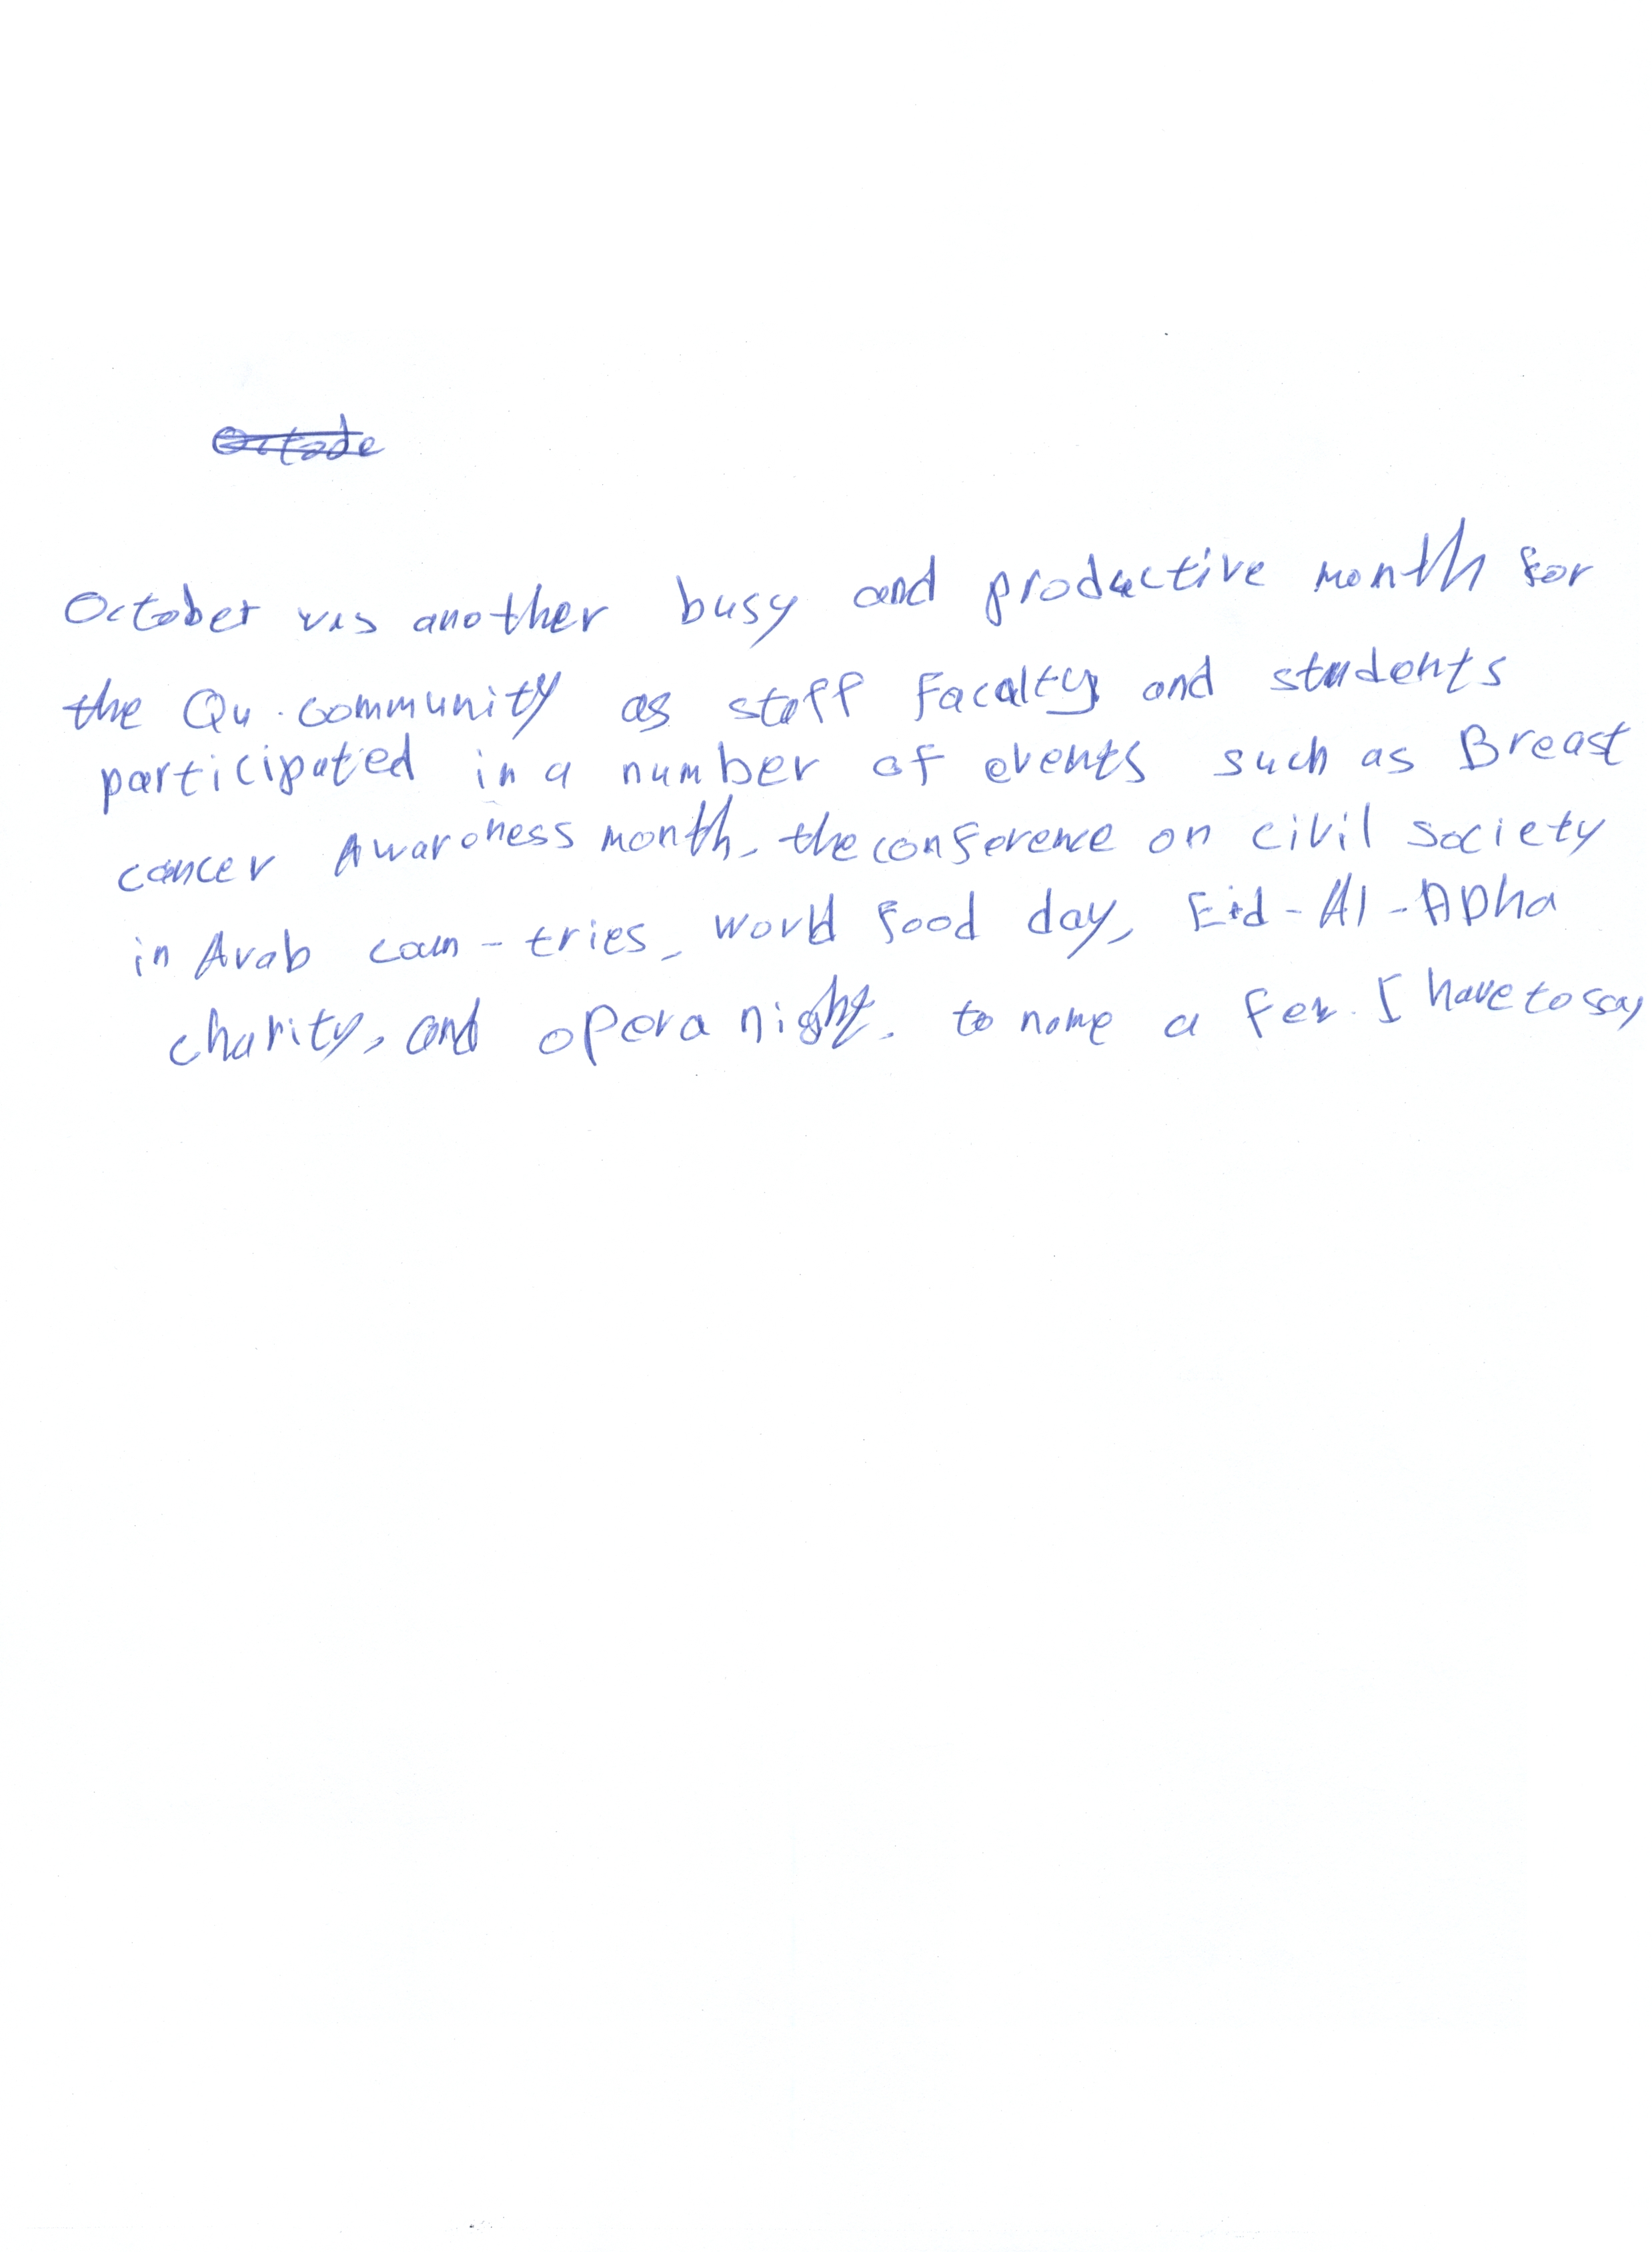 October was another busy and productive month for
the Qu community as staff Faculty and students
participated in a number of events such as Breast
cancer Awareness month, the conference on civil society
in Arab coun-tries, world food day, Eid-Al-Adha
charity, and opera night, to name a few. I have to say